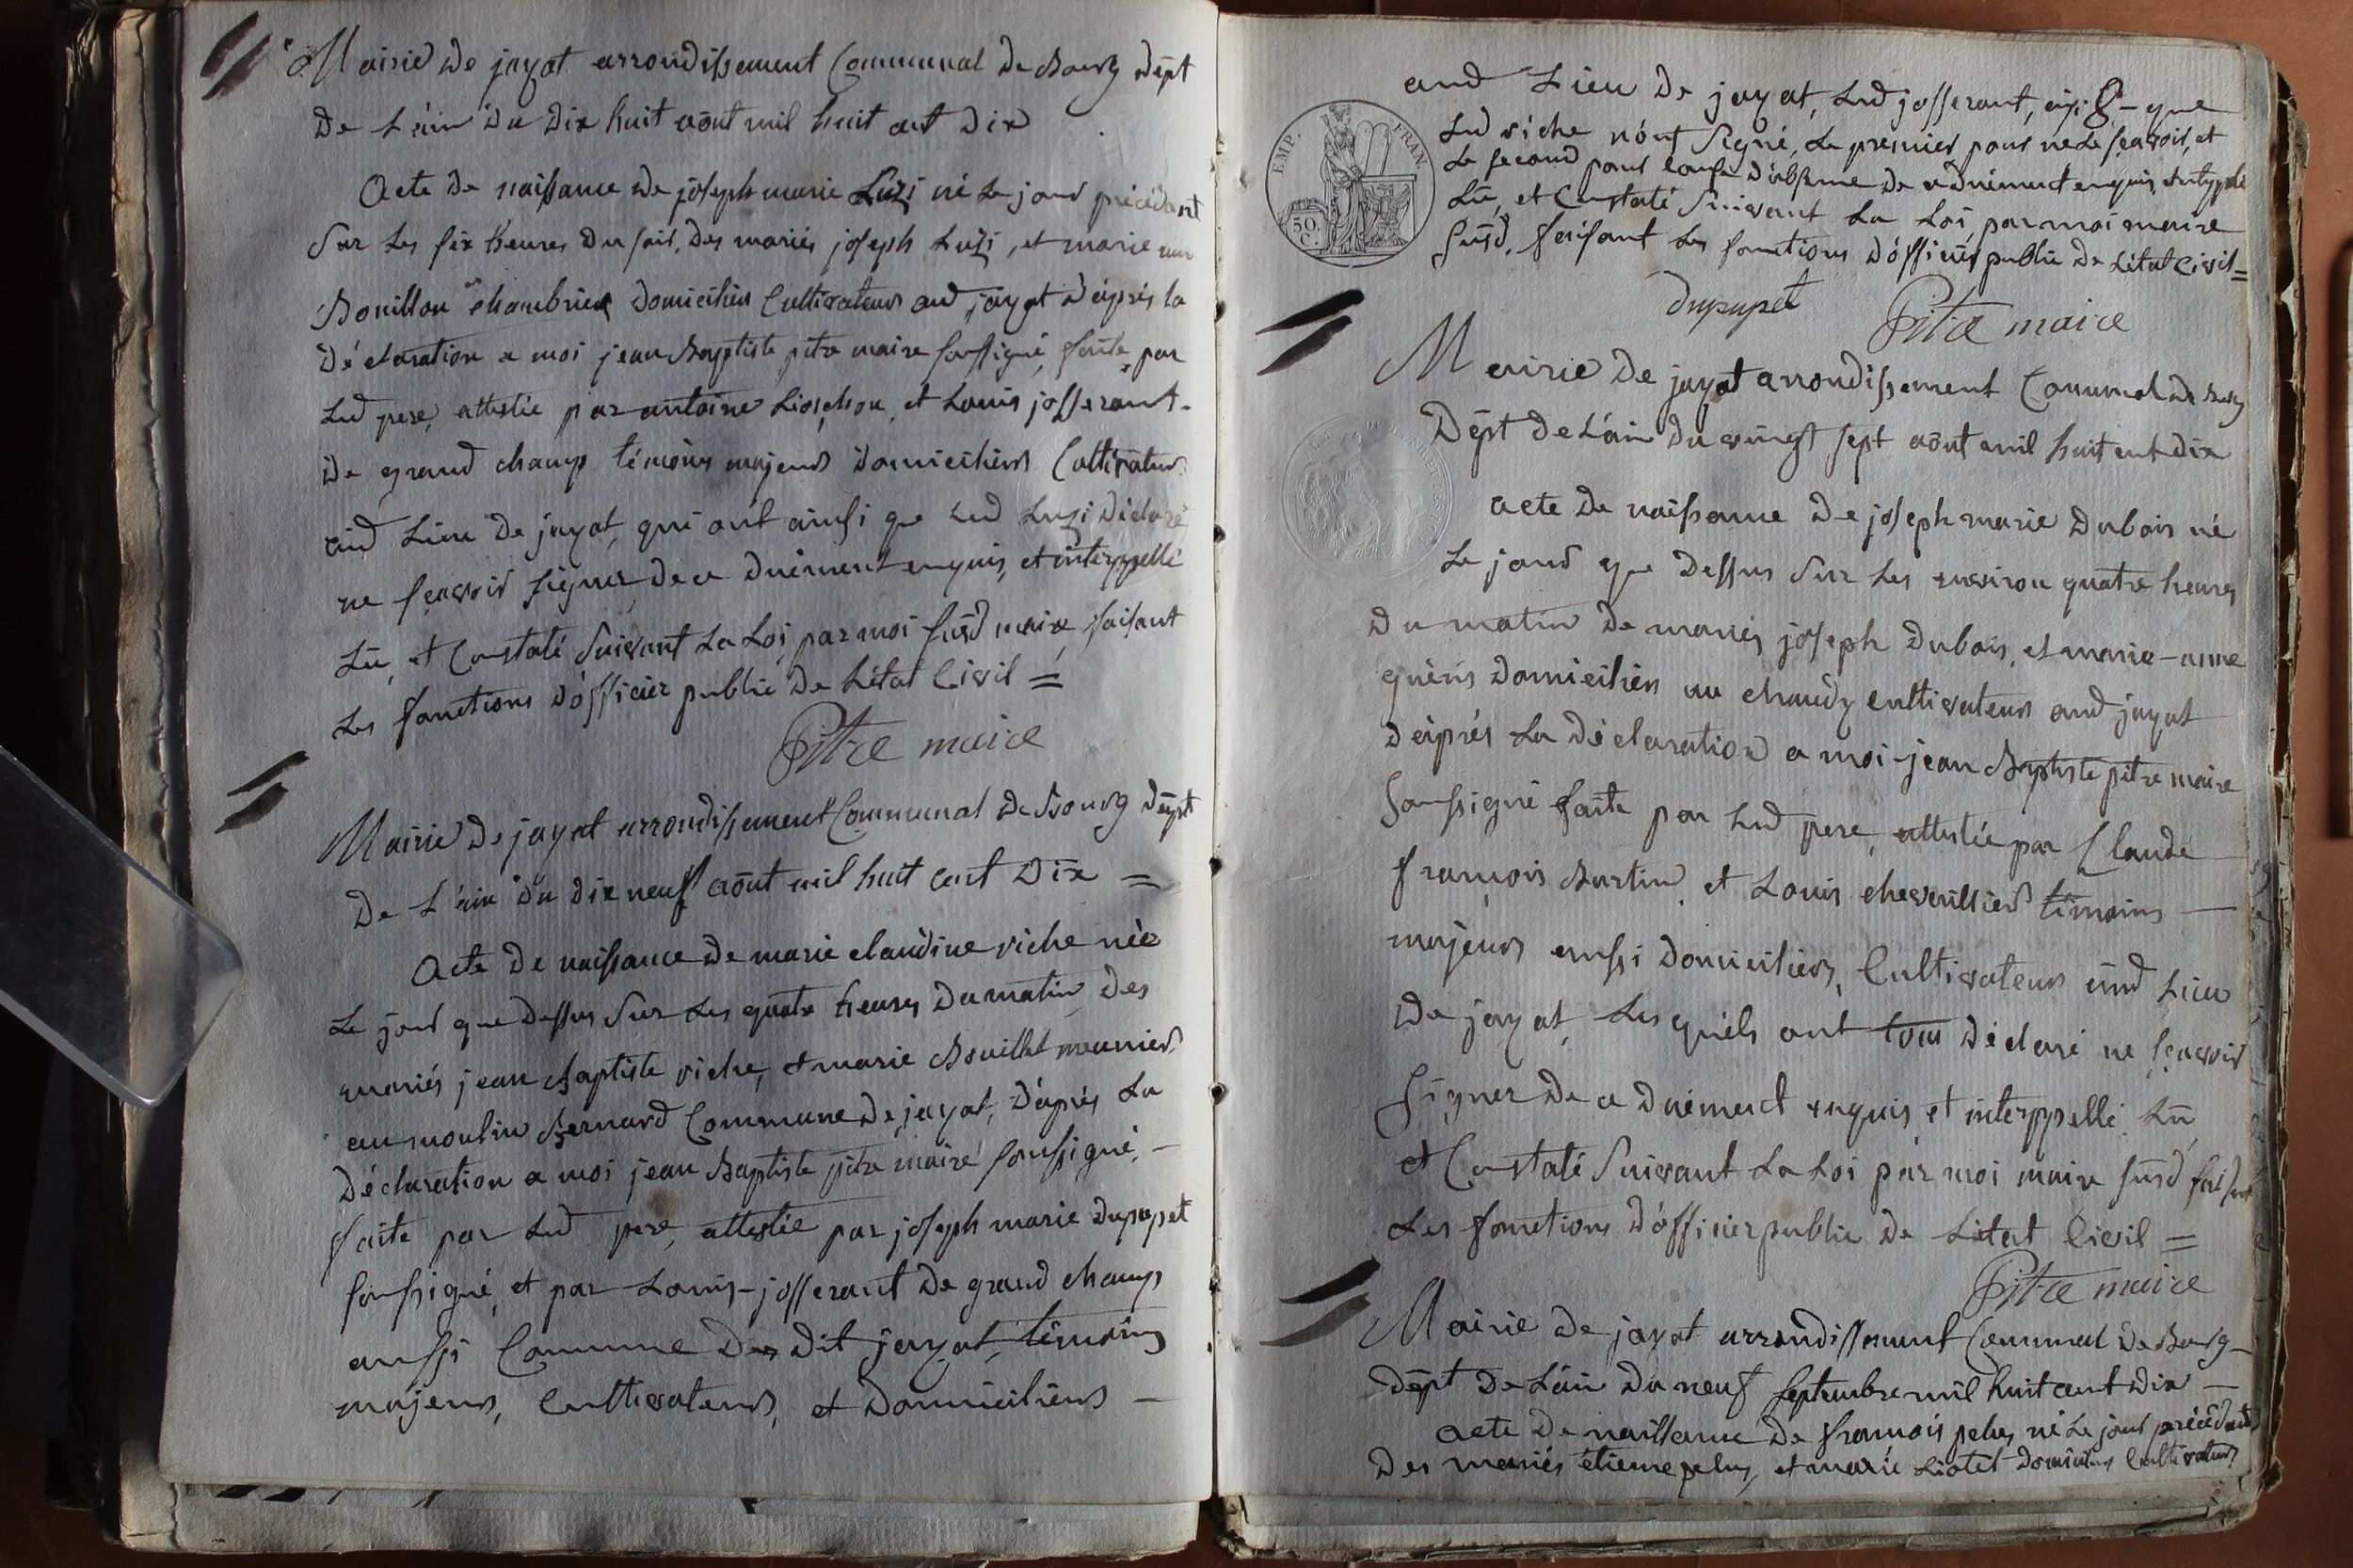 Mairie de jayat arrondissement Communal de Bourg dépt
de L'ain du dix huit août mil huit cent dix
Acte de naissance de joseph marie Luzi né Le jour précédant
Sur Les six heures du soir, des mariés joseph Luzi, et marie
Bouillon chambrier domiciliés Cultivateurs aud jayat d'après la
déclaration a moi jean Baptiste pitre maire soussigné, faite par
Led pere, attestée par antoine et Louis josserant
de grand champ témoins majeurs domiciliés Cultivateurs
aud Lieu de jayat, qui ont ainsi que Led Luzi déclaré
ne sçavoir signer de ce duëment enquis, et interppellé
Lû, et Constaté Suivant La Loi, par moi susd maire faisant
Les fonctions d'officier public de L'état Civil =
Pitre maire
Mairie de jayat arrondissement Communal de Bourg dépt
de L'ain du dix neuf août mil huit cent dix =
Acte de naissance de marie claudine viche née
Le jour que dessus Sur Les quatre heures du matin des
mariés jean Baptiste viche, et marie Brouillet meunier
au moulin Bernard Commune de jayat, d'après La
déclaration a moi jean Baptiste pitre maire soussigné, -
faite par Led pere, attestée par joseph marie dupupet
soussigné, et par Louis-josserant de grand champ
aussi Commune du dit jayat, témoins
majeurs, Cultivateurs, et domiciliés -
aud Lieu de jayat, Led josserant, que
Led viche n'ont Signé, Le premier pour ne Le sçavoir, et
Le second pour cause d'absence de ce duëment enquis, interppellé
Lû, et Constaté Suivant La Loi, par moi maire
susd, faisant Les fonctions d'officier public de L'état Civil =
EMP. FRAN.
50 C.
dupupet Pitre maire
Mairie de jayat arrondissement Communal de Bourg
Dépt de L'ain du vingt sept août mil huit cent dix
acte de naissance de joseph marie Dubois né
Le jour que dessus Sur Les environ quatre heures
du matin de mariés joseph Dubois, et marie-anne
guérin domiciliés au cultivateurs aud jayat
d'après La déclaration a moi jean Baptiste pitre maire
soussigné faite par Led pere, attestée par Claude
françois Burtin, et Louis chevrillier témoins -
majeurs aussi domiciliés, Cultivateurs aud Lieu
de jayat, Lesquels ont tous déclaré ne sçavoir
signer de ce duëment enquis et interppellé Lû
et Constaté Suivant La Loi par moi maire susd faisant
Les fonctions d'officier public de L'état Civil =
Pitre maire
Mairie de jayat arrondissement Communal de Bourg
dépt de L'ain du neuf septembre mil huit cent dix -
acte de naissance de françois pelus né Le jour précédant
des mariés étienne pelus, et marie Liotet domiciliés Cultivateurs